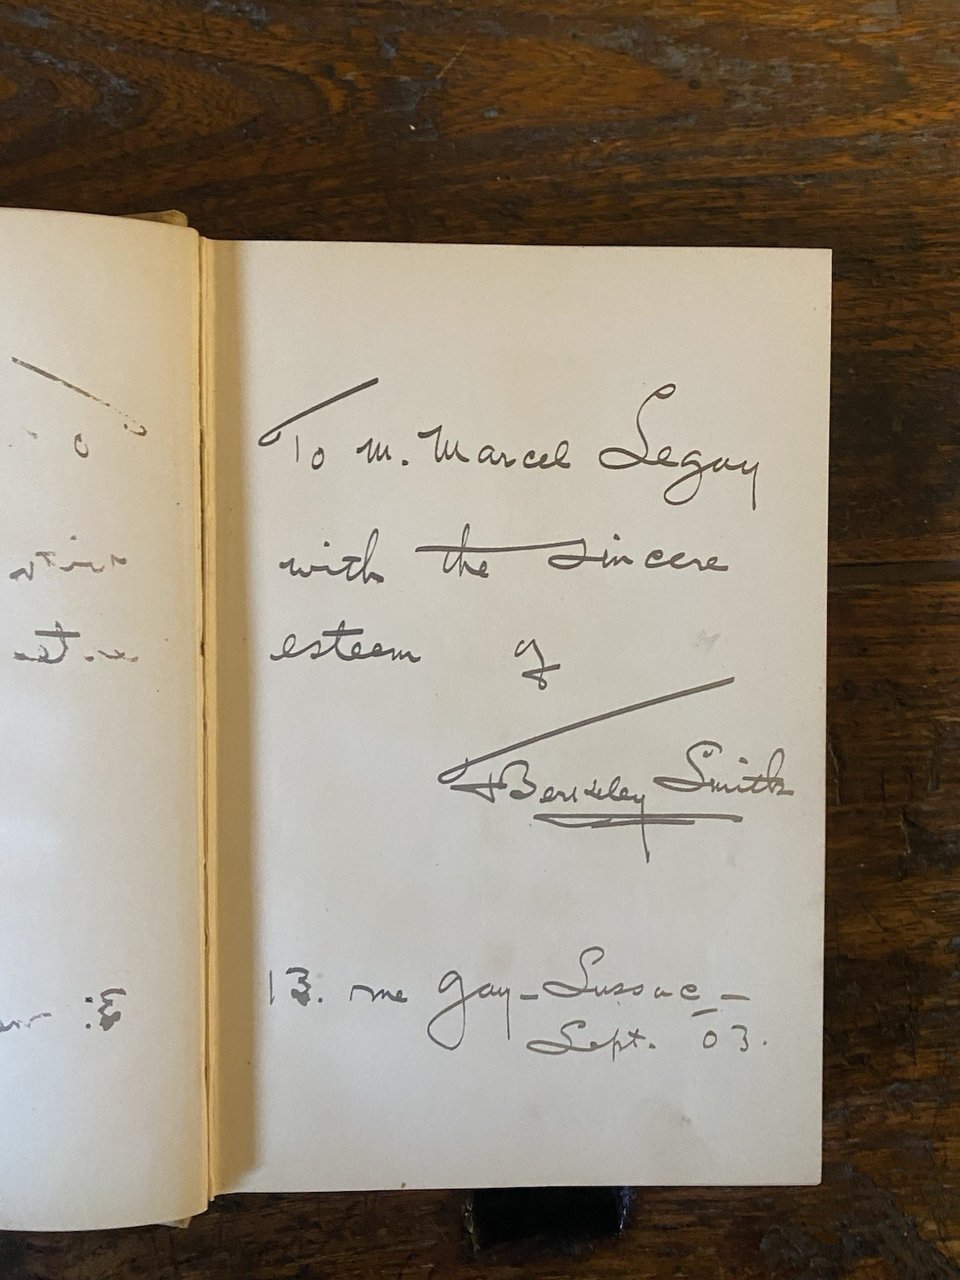 To M. Marcel Legay
with the sincere
esteem of
F Berkeley Smith
13. rue Gay-Lussac -
Sept. '03.